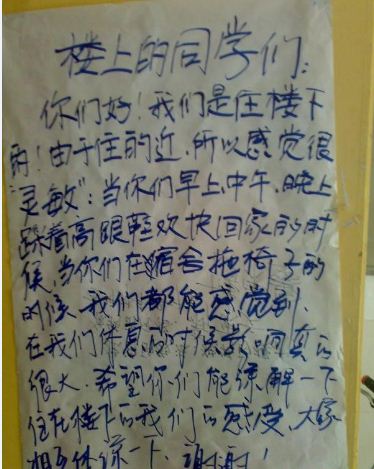 楼上的同学们：
你们好！我们是住楼下
的！由于住的近，所以感觉很
“灵敏”：当你们早上、中午、晚上
踩着高跟鞋欢快回家的时
候，当你们在宿舍拖椅子的
时候、我们都能感觉到、
在我们休息的时候影响真的
很大、希望你们能谅解一下
住在楼下的我们的感受、大家
相互体谅一下、谢谢！